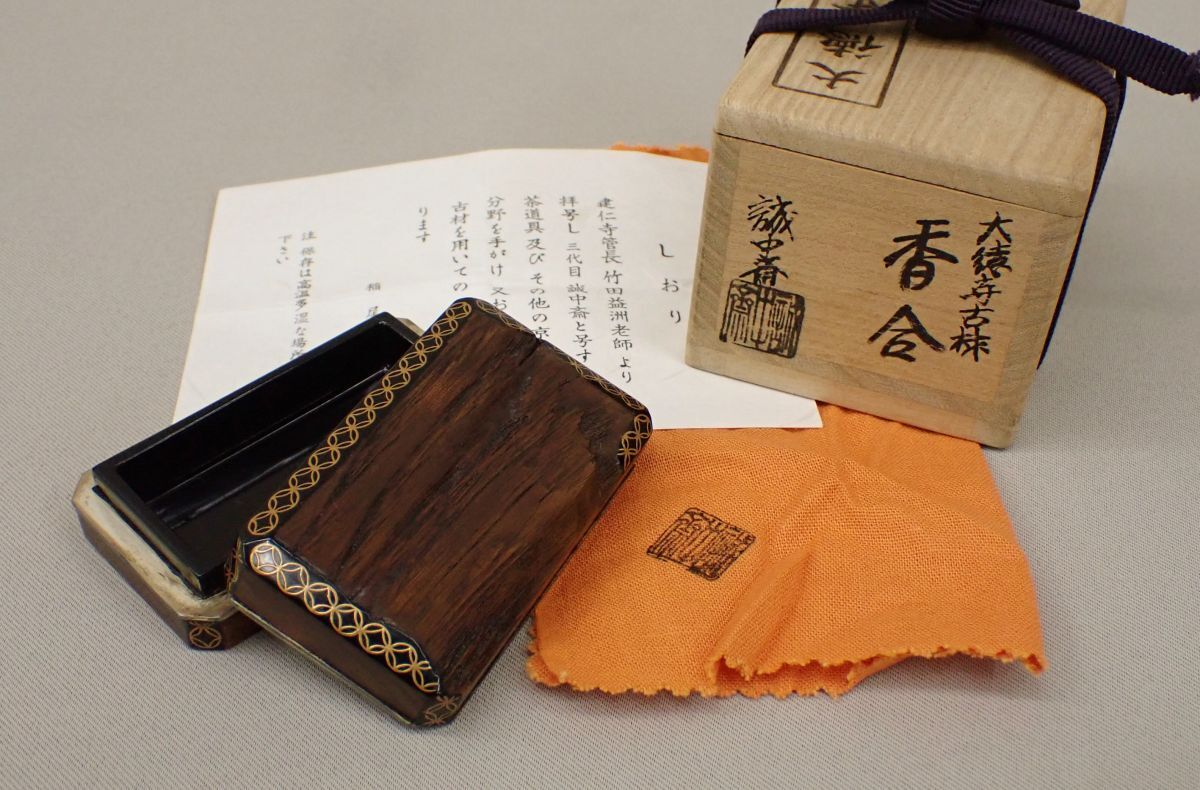 大徳
大徳寺古様
香合
誠中斎
しおり
建仁寺管長 竹田益洲老師 より
拝号し 三代目 誠中斎と号す
茶道具 及び その他の京
分野を手がけ 又お
古材を用いての
ります
稲
注 保存は高温多湿な場所
下さい